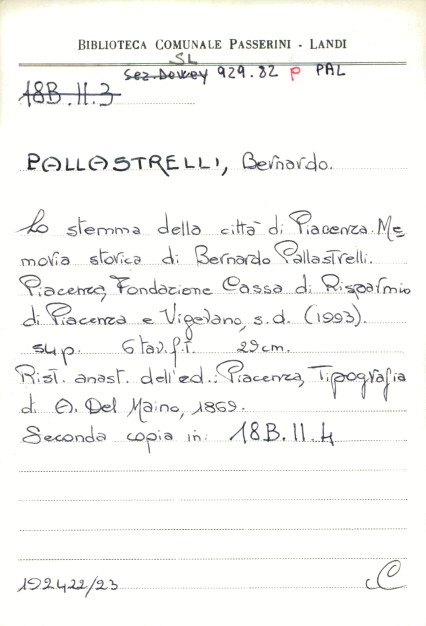 BIBLIOTECA COMUNALE PASSERINI - LANDI
SL
Sez. Dewey 929.82 p PAL
18B.II.3
PALLASTRELLI, Bernardo.
Lo stemma della città di Piacenza. Me=
moria storica di Bernardo Pallastrelli.
Piacenza, Fondazione Cassa di Risparmio
di Piacenza e Vigevano, s.d. (1993).
su p. 6 tav.f.t. 29cm.
Rist. anast. dell'ed.: Piacenza, Tipografia
di A. Del Maino, 1869.
Seconda copia in: 18B.II.4
192422/23